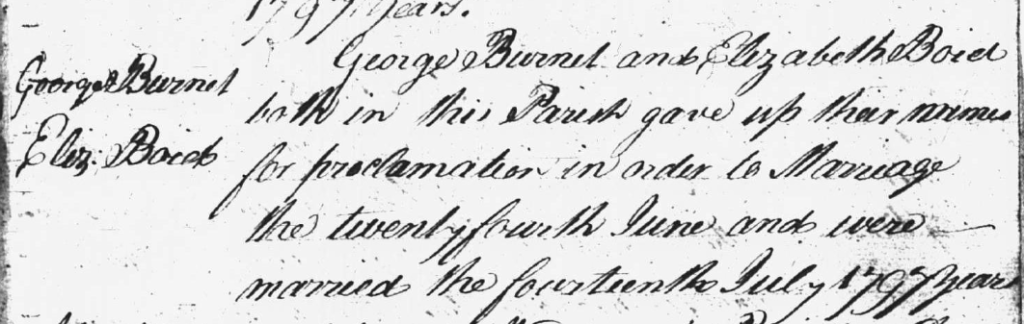 1797 years.
George Burnet and Elizabeth Boid
George Burnet
both in this Parish gave up their names
Eliz: Boid
for proclamation in order to Marriage
the twenty fourth June and were
married the fourteenth July 1797 years